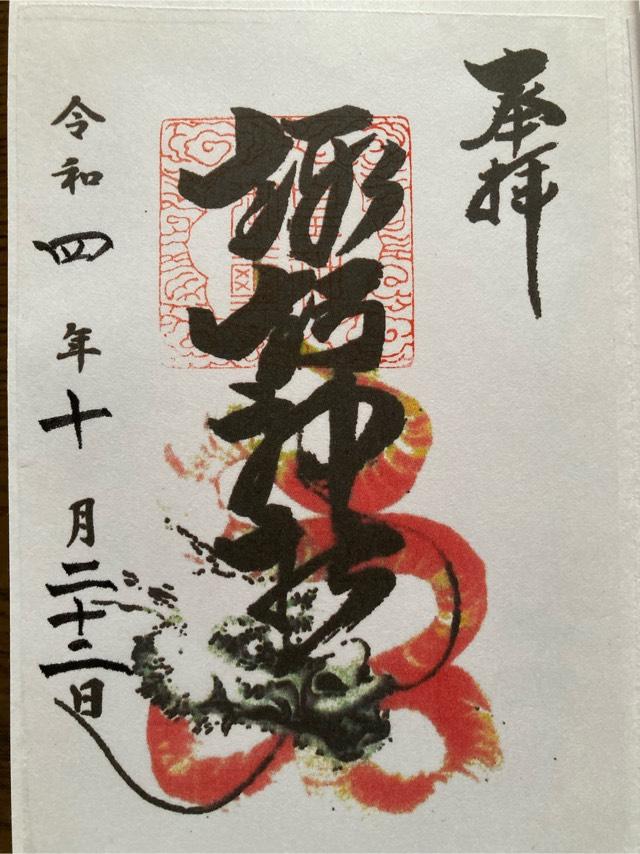 奉拝
諏訪神社
令和四年十月二十二日